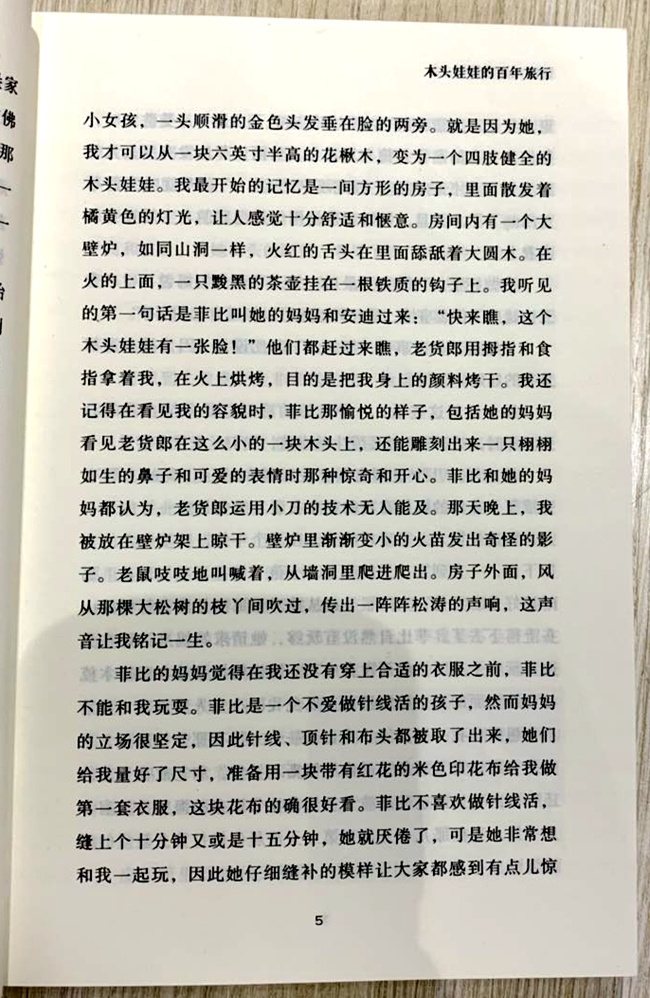 木头娃娃的百年旅行
小女孩，一头顺滑的金色头发垂在脸的两旁。就是因为她，
我才可以从一块六英寸半高的花楸木，变为一个四肢健全的
木头娃娃。我最开始的记忆是一间方形的房子，里面散发着
橘黄色的灯光，让人感觉十分舒适和惬意。房间内有一个大
壁炉，如同山洞一样，火红的舌头在里面舔舐着大圆木。在
火的上面，一只黢黑的茶壶挂在一根铁质的钩子上。我听见
的第一句话是菲比叫她的妈妈和安迪过来：“快来瞧，这个
木头娃娃有一张脸！”他们都赶过来瞧，老货郎用拇指和食
指拿着我，在火上烘烤，目的是把我身上的颜料烤干。我还
记得在看见我的容貌时，菲比那愉悦的样子，包括她的妈妈
看见老货郎在这么小的一块木头上，还能雕刻出来一只栩栩
如生的鼻子和可爱的表情时那种惊奇和开心。菲比和她的妈
妈都认为，老货郎运用小刀的技术无人能及。那天晚上，我
被放在壁炉架上晾干。壁炉里渐渐变小的火苗发出奇怪的影
子。老鼠吱吱地叫喊着，从墙洞里爬进爬出。房子外面，风
从那棵大松树的枝丫间吹过，传出一阵阵松涛的声响，这声
音让我铭记一生。
菲比的妈妈觉得在我还没有穿上合适的衣服之前，菲比
不能和我玩耍。菲比是一个不爱做针线活的孩子，然而妈妈
的立场很坚定，因此针线、顶针和布头都被取了出来，她们
给我量好了尺寸，准备用一块带有红花的米色印花布给我做
第一套衣服，这块花布的确很好看。菲比不喜欢做针线活，
缝上个十分钟又或是十五分钟，她就厌倦了，可是她非常想
和我一起玩，因此她仔细缝补的模样让大家都感到有点儿惊
5
家
佛
那